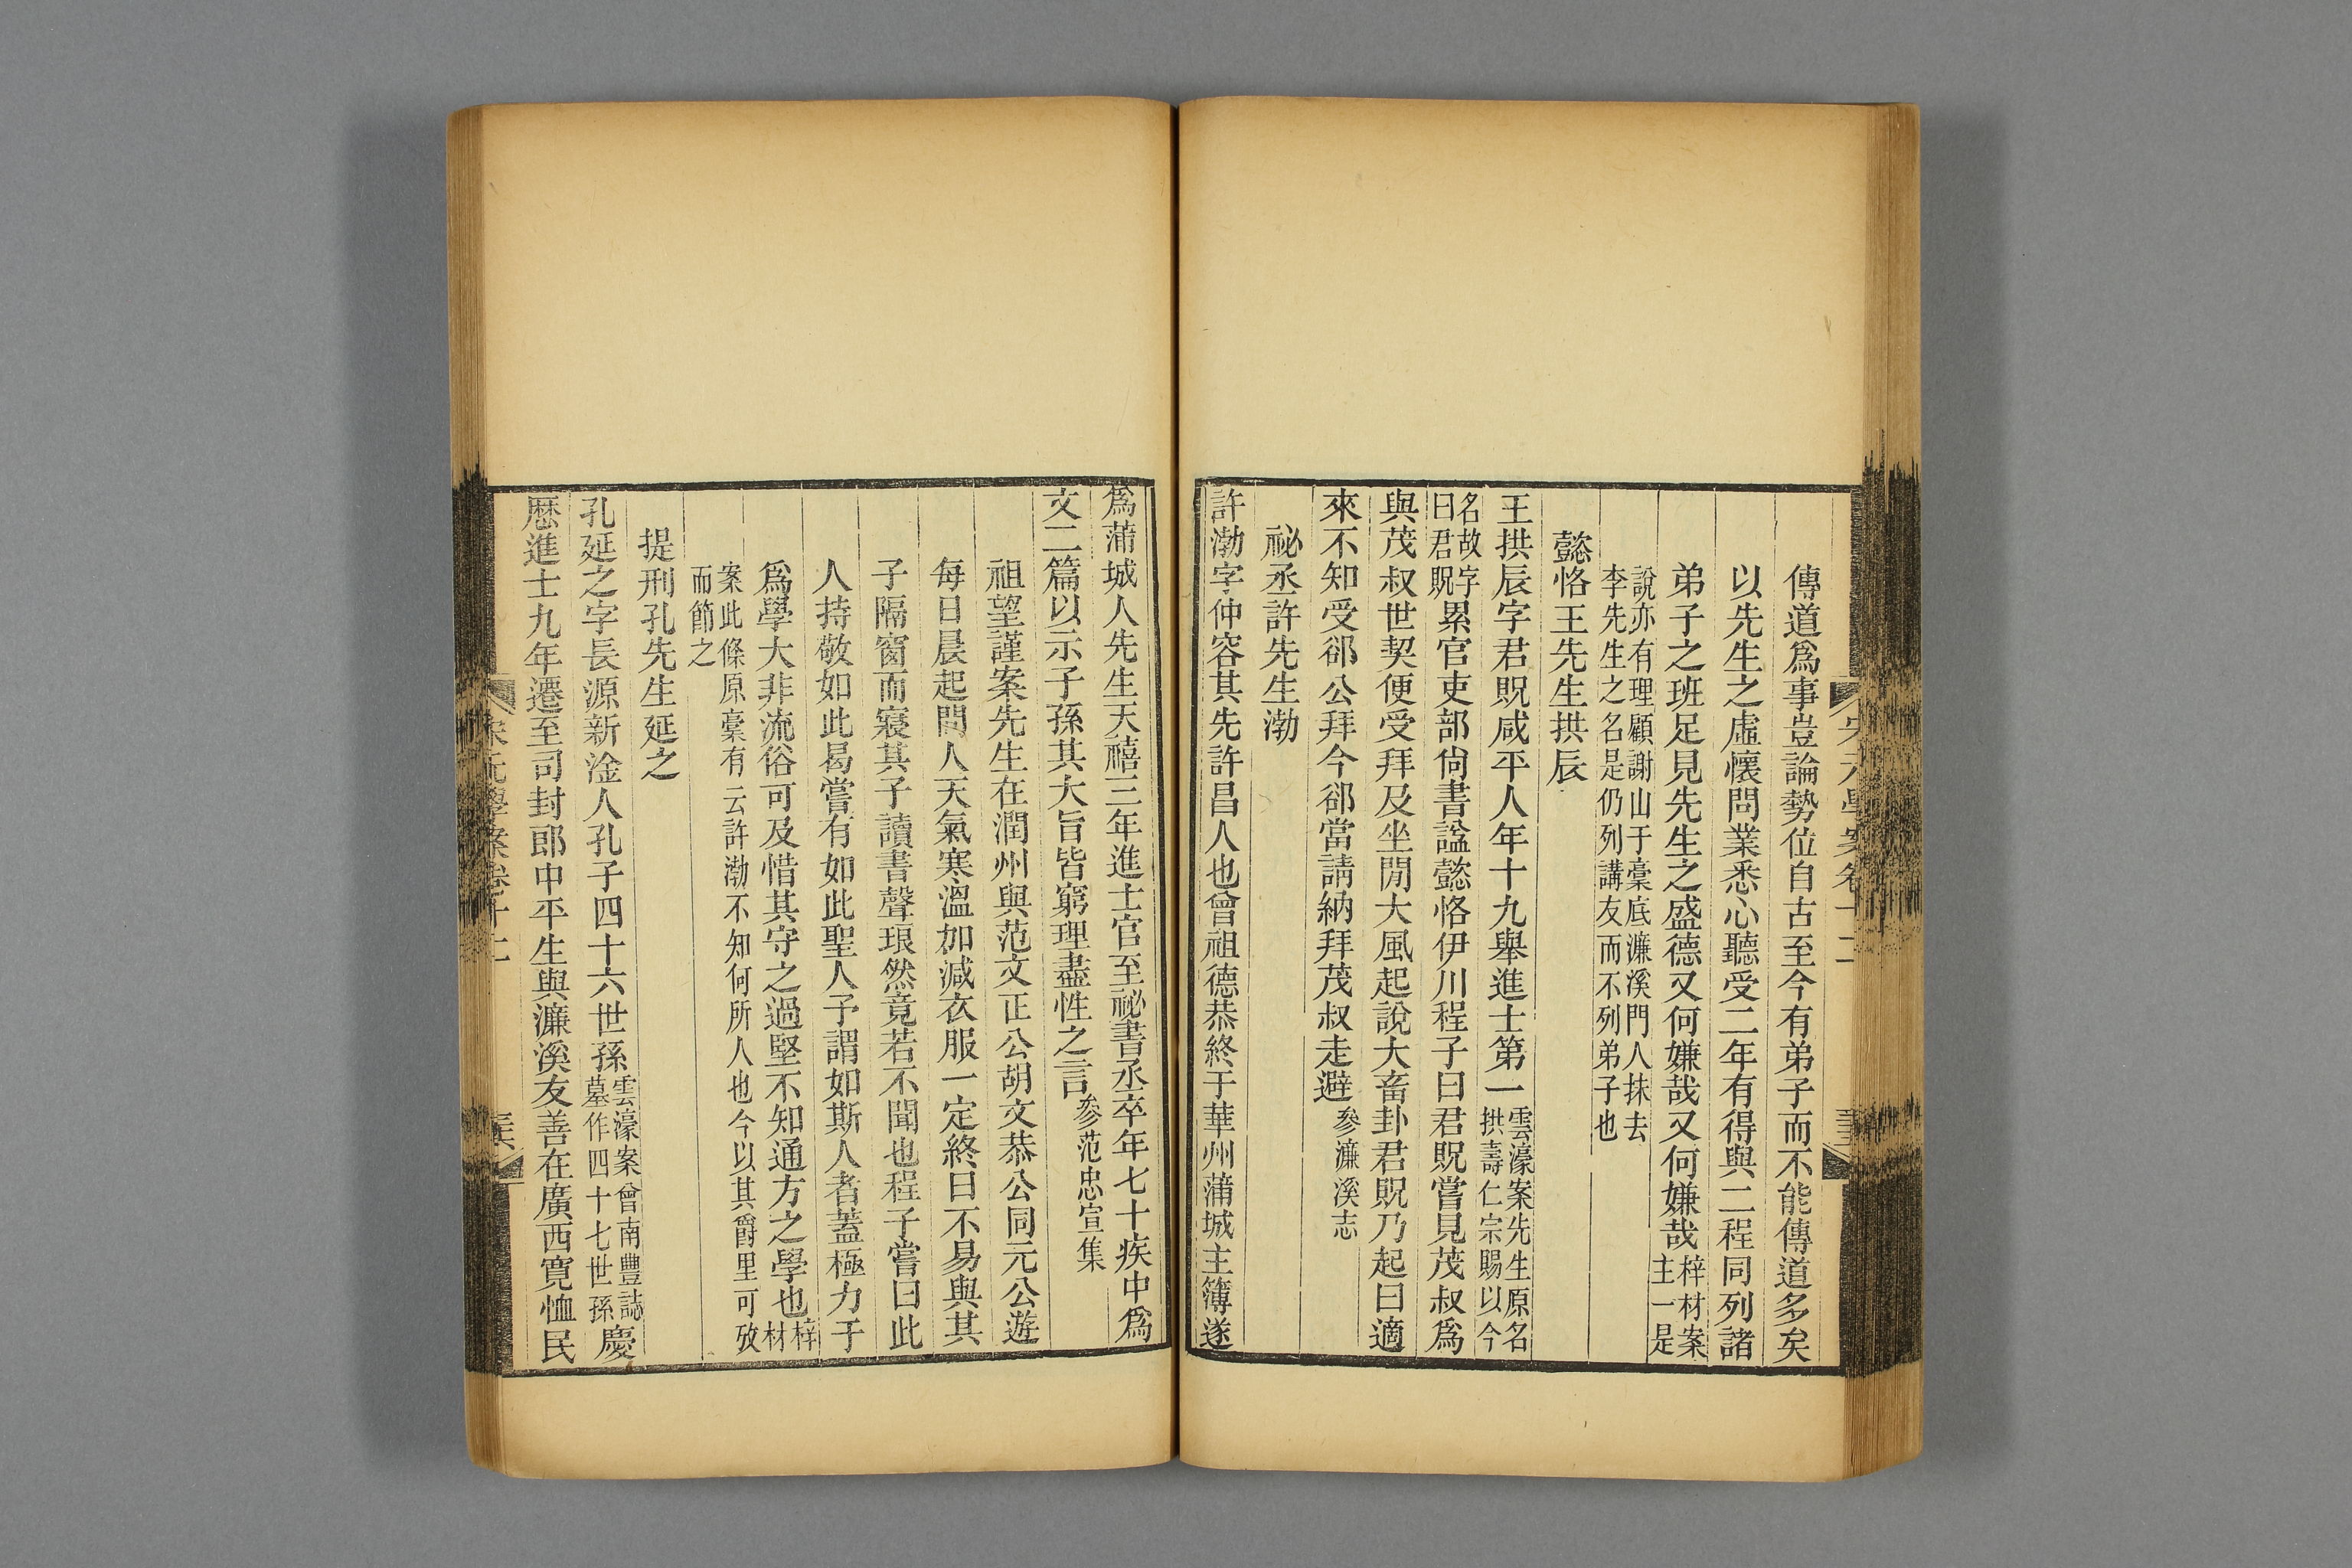 傳道爲事豈論勢位自古至今有弟子而不能傳道多矣
以先生之虛懷問業悉心聽受二年有得與二程同列諸
弟子之班足見先生之盛德又何嫌哉又何嫌哉梓材案主一是
說亦有理顧謝山于稾底濂溪門人抹去
李先生之名是仍列講友而不列弟子也
懿恪王先生拱辰
王拱辰字君貺咸平人年十九舉進士第一雲濠案先生原名拱壽仁宗賜以今
名故字曰君貺累官吏部尙書諡懿恪伊川程子曰君貺嘗見茂叔爲
與茂叔世契便受拜及坐閒大風起說大畜卦君貺乃起曰適
來不知受郤公拜今郤當請納拜茂叔走避參濂溪志
祕丞許先生渤
許渤字仲容其先許昌人也曾祖德恭終于華州蒲城主簿遂
爲蒲城人先生天禧三年進士官至祕書丞卒年七十疾中爲
文二篇以示子孫其大旨皆窮理盡性之言參范忠宣集
祖望謹案先生在潤州與范文正公胡文恭公同元公遊
每日晨起問人天氣寒溫加減衣服一定終日不易與其
子隔窗而寢其子讀書聲琅然竟若不聞也程子嘗曰此
人持敬如此曷嘗有如此聖人予謂如斯人者蓋極力于
爲學大非流俗可及惜其守之過堅不知通方之學也梓材
案此條原稾有云許渤不知何所人也今以其爵里可攷
而節之
提刑孔先生延之
孔延之字長源新淦人孔子四十六世孫雲濠案曾南豐誌墓作四十七世孫慶
厯進士九年遷至司封郎中平生與濂溪友善在廣西寬恤民
宋元學案卷十二